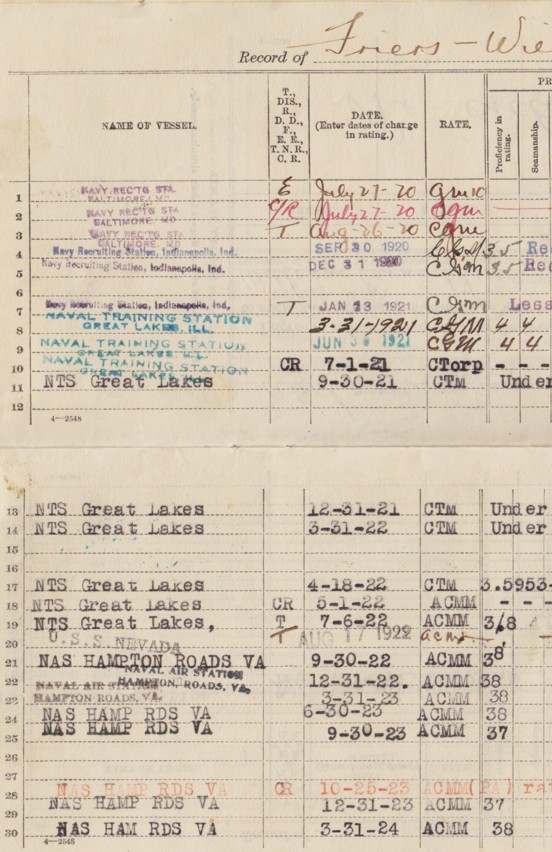 Record of Friers - Wie
PR
NAME OF VESSEL.
T., DIS., R., D. D., F., E. E., T. N. R., C. R.
DATE. (Enter dates of change in rating.)
RATE.
Proficiency in rating.
Seamanship.
1 NAVY REC'TG STA. BALTIMORE, MD. E July 27-20 Cgm
2 NAVY REC'TG STA BALTIMORE, MD C/R July 27-20 Cgm
3 NAVY REC'TG STA BALTIMORE, MD T Aug-26-20 Cgm
4 Navy Recruiting Station, Indianapolis, Ind. SEP 30 1920 CGM 3 5 Re
5 Navy Recruiting Station, Indianapolis, Ind. DEC 31 1920 CGm 3 5 Rec
6
7 Navy Recruiting Station, Indianapolis, Ind. T JAN 13 1921 CGm Less
8 NAVAL TRAINING STATION GREAT LAKES, ILL. 3-31-1921 CGM 4 4
9 NAVAL TRAINING STATION GREAT LAKES ILL. JUN 30 1921 CGM 4 4
10 NAVAL TRAINING STATION GREAT LAKES CR 7-1-21 CTorp - - -
11 NTS Great Lakes 9-30-21 CTM Under
12
4—2548
13 NTS Great Lakes 12-31-21 CTM Under
14 NTS Great Lakes 3-31-22 CTM Under
15
16
17 NTS Great Lakes 4-18-22 CTM 3.5953-
18 NTS Great Lakes CR 5-1-22 ACMM - - -
19 NTS Great Lakes, T 7-6-22 ACMM 3.8 4
20 U.S.S. NEVADA T AUG 17 1922 acm
21 NAS HAMPTON ROADS VA 9-30-22 ACMM 38
22 NAVAL AIR STATION HAMPTON, ROADS, VA. 12-31-22. ACMM 38
23 NAVAL AIR STATION HAMPTON ROADS, VA. 3-31-23 ACMM 38
24 NAS HAMP RDS VA 6-30-23 ACMM 38
25 NAS HAMP RDS VA 9-30-23 ACMM 37
26
27
28 NAS HAMP RDS VA CR 10-25-23 ACMM(PA) rat
NAS HAMP RDS VA 12-31-23 ACMM 37
30 NAS HAM RDS VA 3-31-24 ACMM 38
4—2548